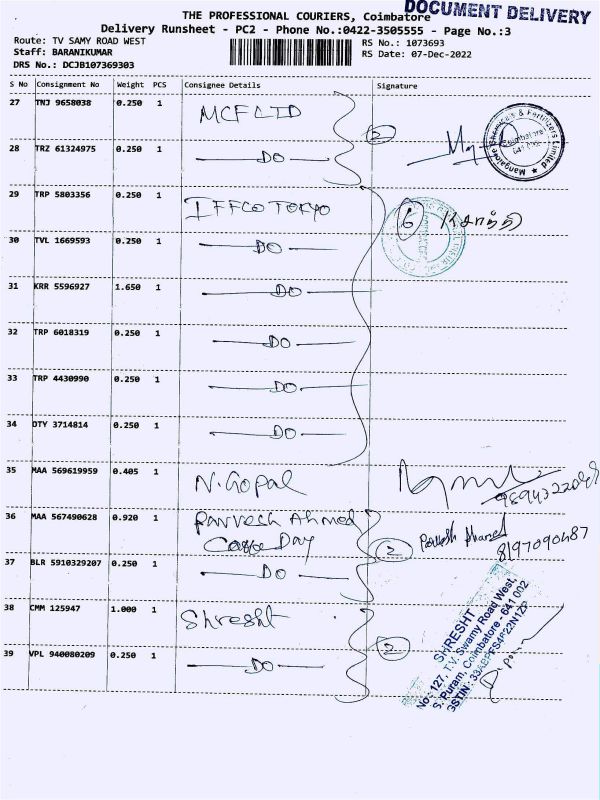 DOCUMENT DELIVERY
THE PROFESSIONAL COURIERS, Coimbatore
Delivery Runsheet - PC2 - Phone No.:0422-3505555 - Page No.:3
Route: TV SAMY ROAD WEST
RS No.: 1073693
Staff: BARANIKUMAR
RS Date: 07-Dec-2022
DRS No.: DCJB107369303
S No Consignment No Weight PCS Consignee Details Signature
27 TNJ 9658038 0.250 1 MCF LTD
2
Mangalore Chemicals & Fertilizers Limited
Coimbatore
641 002
28 TRZ 61324975 0.250 1 DO
29 TRP 5803356 0.250 1 IFFCO TOKYO
6
30 TVL 1669593 0.250 1 DO
31 KRR 5596927 1.650 1 DO
32 TRP 6018319 0.250 1 DO
33 TRP 4430990 0.250 1 DO
34 DTY 3714814 0.250 1 DO
35 MAA 569619959 0.405 1 N. Gopal
36 MAA 567490628 0.920 1 Parvesh Ahmed
Coffe Day
2
8197090487
37 BLR 5910329207 0.250 1 DO
38 CMM 125947 1.000 1 Shresht
2
SHRESHT
No: 127, T.V. Swamy Road West,
S. Puram, Coimbatore - 641 002
39 VPL 940080209 0.250 1 DO